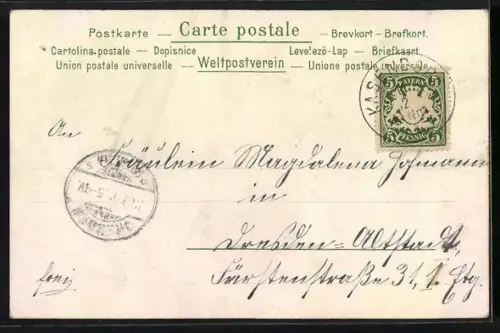 Postkarte — Carte postale — Brevkort - Brefkort.
Cartolina postale — Dopisnice Levelező-Lap — Briefkaart
Union postale universelle — Weltpostverein — Unione postale universale
BAYERN
5 5
PFENNIG
An
Fräulein Magdalena Hofmann
in
Dresden=Altstadt,
frei Fürstenstraße 31, I. Etg.